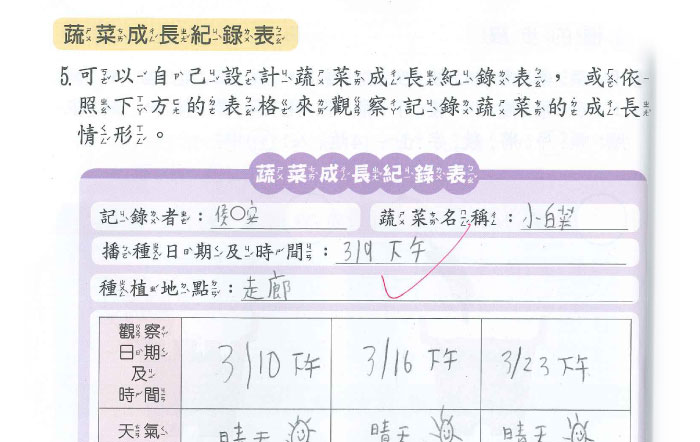 蔬菜成長紀錄表
5.可以自己設計蔬菜成長紀錄表，或依
照下方的表格來觀察記錄蔬菜的成長
情形。
蔬菜成長紀錄表
記錄者：侯〇 蔬菜名稱：小白菜
播種日期及時間：3/9 下午
種植地點：走廊
觀察日期及時間 3/10 下午 3/16 下午 3/23 下午
天氣 晴天 晴天 晴天